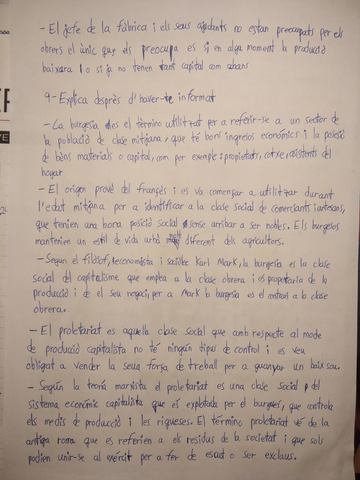 - El jefe de la fàbrica i els seus ajudants no estan preocupats per els
obrers el únic que els preocupa es si en algu moment la producció
baixara i o si ja no tenen tant capital com abans
9-Explica després d'haver-te informat
- La burgesia es el término utilitzat per a referir-se a un sector de
la població de clase mitjana, que té bons ingreios econòmics i la poseió
de béns materials o capital, com per exemple: propietats, cotxe, asistents del
hogar
- El origen prové del françés i es va començar a utilitzar durant
l'edat mitjana per a identificar a la clase social de comerciants i artesans,
que tenien una bona posició social sense arribar a ser nobles. Els burgesos
mantenien un estil de vida urbà molt diferent dels agricultors.
- Segun el filósof, economista i sociòlec Karl Mark, la burgesia es la clase
social del capitalisme que emplea a la clase obrera i es propietaria de la
producció i de el seu negoci, per a Mark la burgesia es el contrari a la clase
obrera.
- El proletariat es aquella clase social que amb respecte al mode
de producció capitalista no té ningún tipus de control i es veu
obligat a vender la seua força de treball per a guanyar un baix sou.
- Según la teoría marxista el proletariat es una clase social del
sistema econòmic capitalista que es explotada per el burgues, que controla
els medis de producció i les riqueses. El término proletariat vé de la
antiga roma que es referien a els residus de la societat i que sols
podien unir-se al exèrcit per a fer de escut o ser exclaus.